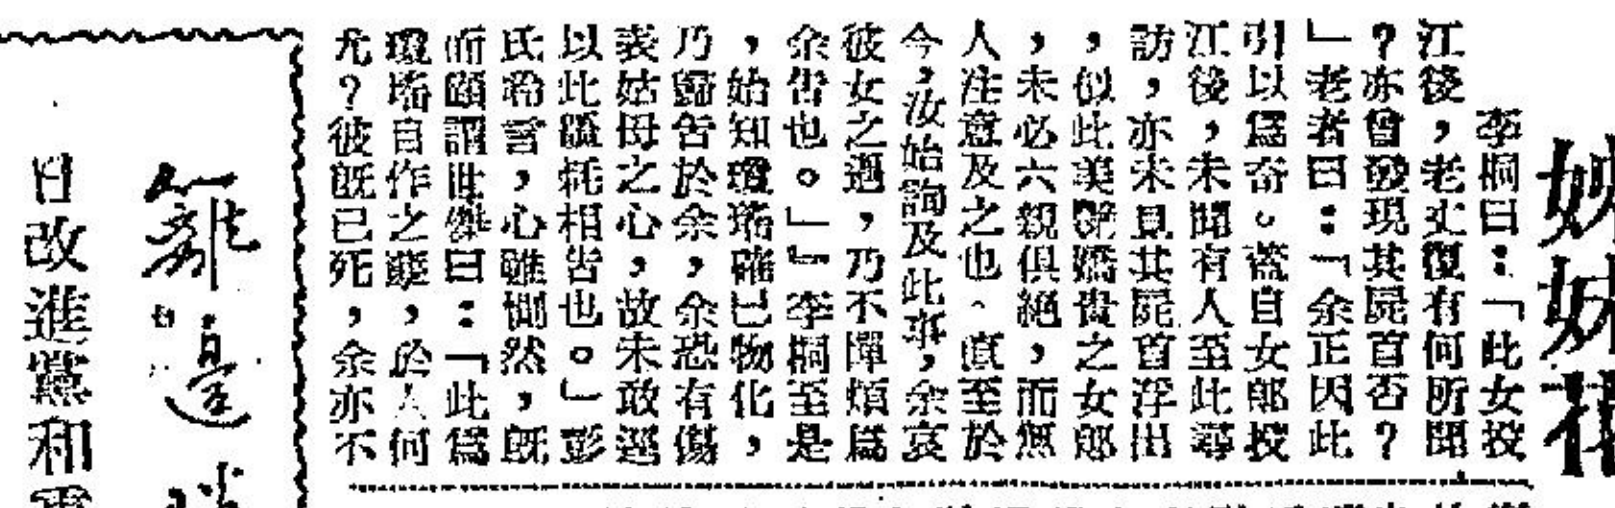 姊妹花
李桐曰：「此女投
江後，老丈復有何所聞
？亦曾發現其屍首否？
」老者曰：「余正因此
引以爲奇。蓋自女郎投
江後，未聞有人至此尋
訪，亦未見其屍首浮出
，似此美艷嬌貴之女郎
，未必六親俱絕，而無
人注意及之也。直至於
今，汝始詢及此事，余哀
彼女之遇，乃不憚煩爲
余告也。」』李桐至是
，始知瓊瑤確已物化，
乃歸告於余，余恐有傷
表姑母之心，故未敢逕
以此噩耗相告也。」彭
氏聆言，心雖惻然，既
而顧謂世傑曰：「此爲
瓊瑤自作之孽，於人何
尤？彼既已死，余亦不
籬邊
日改進黨和